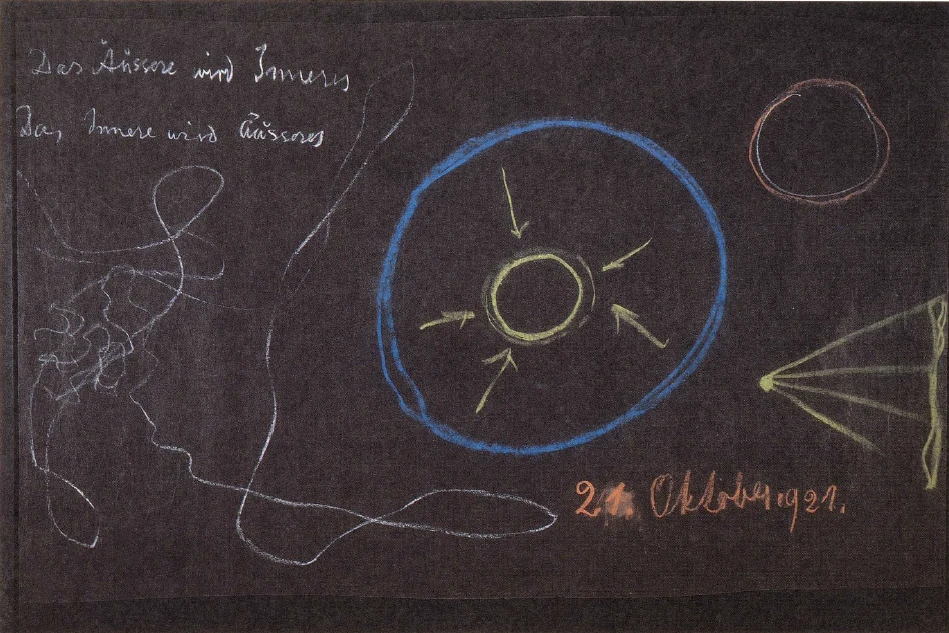 Das Äussere wird Inneres
Das Innere wird Äusseres
21. Oktober 1921.